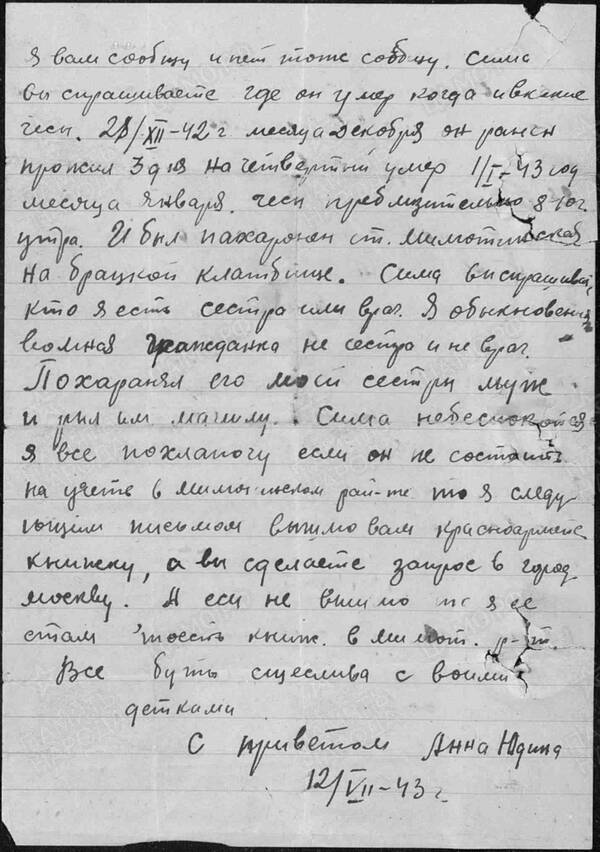 я вам сообщу и нет тоже сообщу. Сима
вы спрашиваете где он умер когда и в какие
чесы. 28/XII-42 г месяца декабря он ранен
прожил 3 дня на четвертый умер 1/I-43 год
месяца января. чесы преблизительно в 10 г.
утра. И был пахаронен ст.
на брацкой кладбище. Сима вы спрашивайте
кто я есть сестра или врач. Я обыкновенная
гражданка не сестра и не врач.
Похаранял его мой сестры муж
и рыл им магилу. Сима небеспокойся
я все похлапочу если он не состаит
на учете в райте то я следу
ющим письмом вышлю вам красноармейс
книжку, а вы сделаете запрос в город
москву. А если не вышлю то я ее
стам тоесть книж. в мимот. р-т.
Все буть сщеслива с воими
детками
С приветом Анна Юдина
12/VII-43 г.